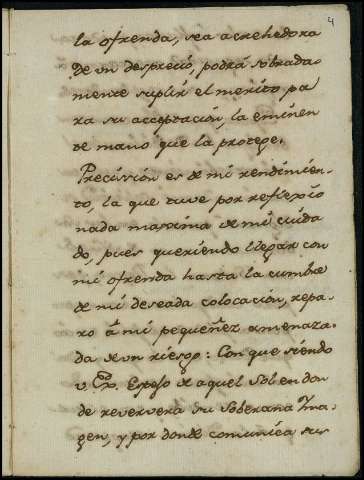 4
la ofrenda, sea acrehedora
de un desprecio, podrá sobrada-
mente suplir el merito pa
ra su acceptación, la eminen
te mano que la protege.
Precission es de mi rendimien-
to, la que tuve por reflexio
nada maxima de mi cuida
do, pues queriendo llegar con
mi ofrenda hasta la cumbre
de mi deseada colocación, repa-
ro â mi pequeñez amenaza-
da de un riesgo: Con que siendo
v. Exª. Espejo de aquel Sol en don
de reververa su Soberana Yma-
gen, y por donde comunica sus